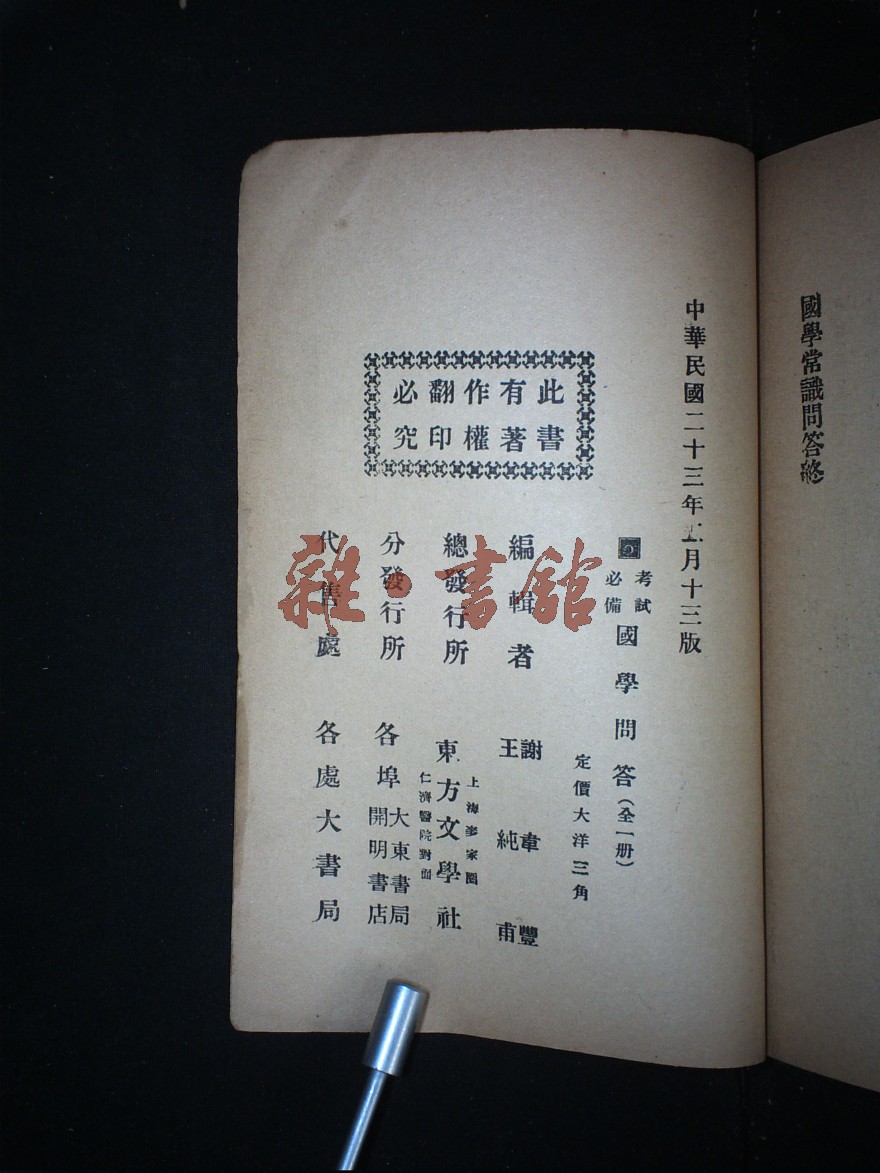 國學常識問答終
中華民國二十三年五月十三版
考試必備 國學問答（全一册）
定價大洋三角
此書
有著
作權
翻印
必究
編輯者 謝韋豐 王純甫
總發行所 東方文學社 上海麥家圈 仁濟醫院對面
分發行所 各埠 大東書局 開明書店
代售處 各處大書局
雜·書館